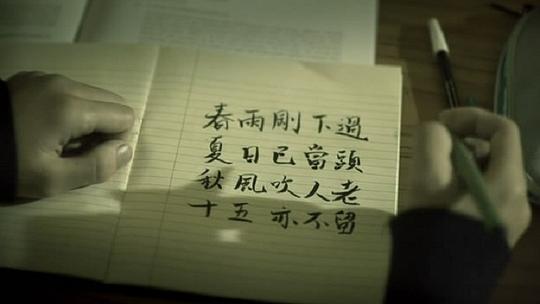 春雨剛下過
夏日已當頭
秋風吹人老
十五亦不留